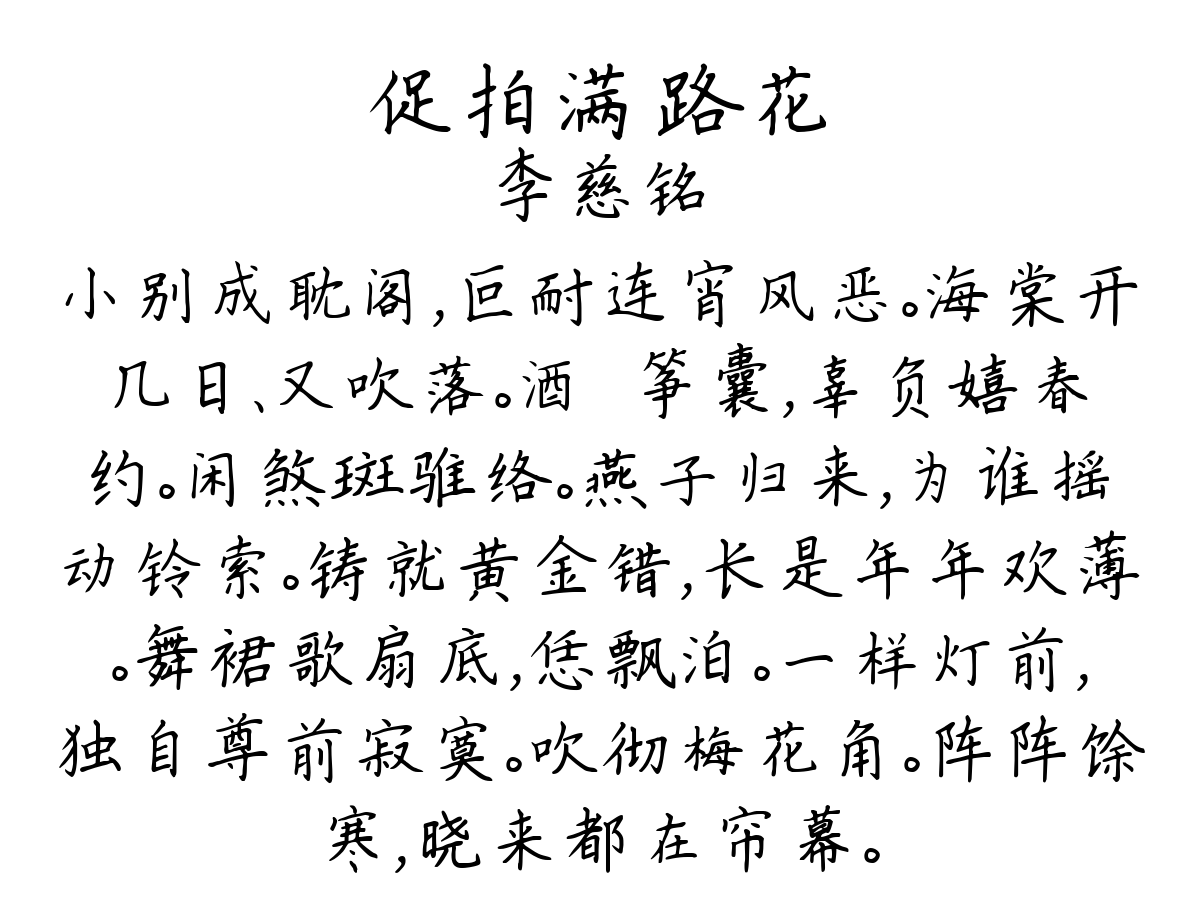 促拍满路花
李慈铭
小别成耽阁,叵耐连宵风恶。海棠开
几日、又吹落。酒 筝囊,辜负嬉春
约。闲煞斑骓络。燕子归来,为谁摇
动铃索。铸就黄金错,长是年年欢薄
。舞裙歌扇底,恁飘泊。一样灯前,
独自尊前寂寞。吹彻梅花角。阵阵馀
寒,晓来都在帘幕。